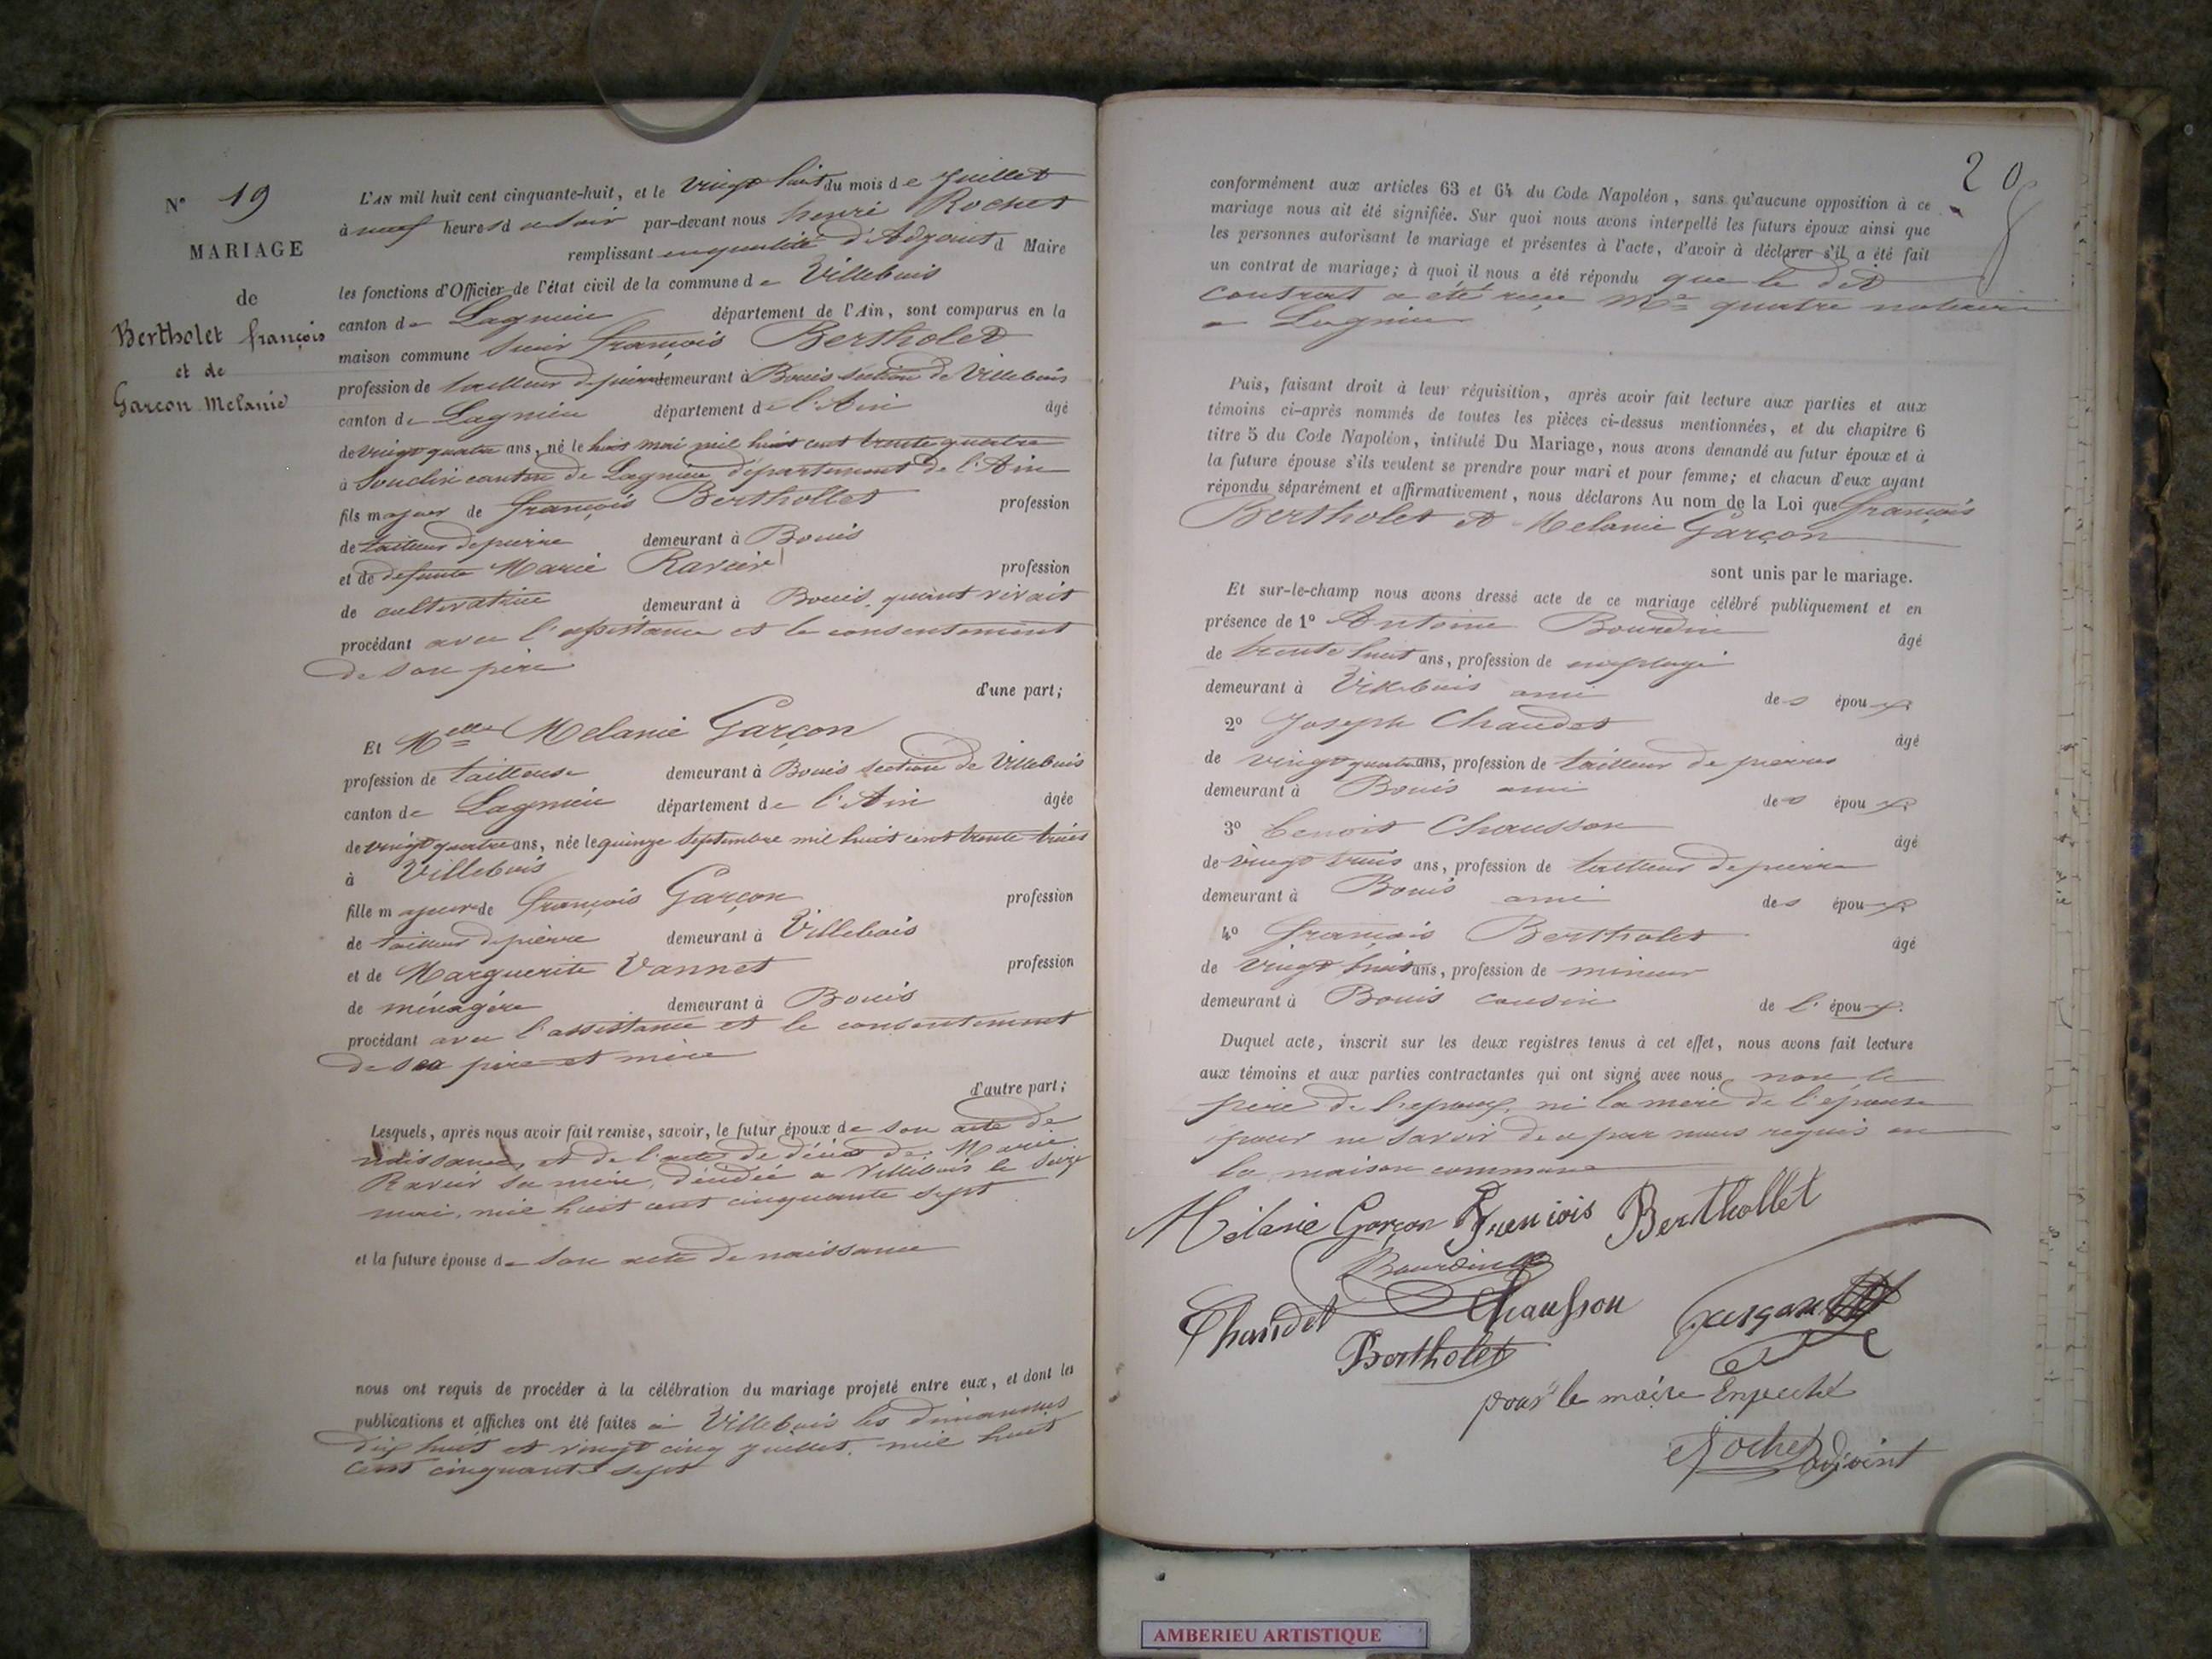 N° 19
MARIAGE
de
Bertholet françois
et de
Garcon Melanie
L'AN mil huit cent cinquante-huit, et le vingt huit du mois de Juillet
à neuf heures du soir par-devant nous henri Rochet
remplissant en qualité d'Adjoint d Maire
les fonctions d'Officier de l'état civil de la commune de Villebois
canton de Lagnieu département de l'Ain, sont comparus en la
maison commune Sieur françois Bertholet
profession de tailleur de pierre demeurant à Bouis section de Villebois
canton de Lagnieu département de l'Ain âgé
de vingt quatre ans, né le huit mai mil huit cent trente quatre
à Souclin canton de Lagnieu département de l'Ain
fils majeur de françois Berthollet profession
de tailleur de pierre demeurant à Bouis
et de defunte Marie Ravier profession
de cultivatrice demeurant à Bouis, quant vivait
procédant avec l'assistance et le consentement
de son père
d'une part;
Et Melle Melanie Garçon
profession de tailleuse demeurant à Bouis section de Villebois
canton de Lagnieu département de l'Ain âgée
de vingt quatre ans, née le quinze Septembre mil huit cent trente trois
à Villebois
fille majeure de françois Garçon profession
de tailleur de pierre demeurant à Villebois
et de Marguerite Vannet profession
de ménagère demeurant à Bouis
procédant avec l'assistance et le consentement
de ses père et mère
d'autre part;
Lesquels, après nous avoir fait remise, savoir, le futur époux de son acte de
naissance, et de l'acte de décès de Marie
Ravier sa mère, décédée a Villebois le seize
mai, mil huit cent cinquante sept
et la future épouse de son acte de naissance
nous ont requis de procéder à la célébration du mariage projeté entre eux, et dont les
publications et affiches ont été faites à Villebois les dimanches
dix huit et vingt cinq juillet, mil huit
cent cinquante sept
20
conformément aux articles 63 et 64 du Code Napoléon, sans qu'aucune opposition à ce
mariage nous ait été signifiée. Sur quoi nous avons interpellé les futurs époux ainsi que
les personnes autorisant le mariage et présentes à l'acte, d'avoir à déclarer s'il a été fait
un contrat de mariage; à quoi il nous a été répondu que le dit
contrat a été reçu Me quatre notaire
a Lagnieu
Puis, faisant droit à leur réquisition, après avoir fait lecture aux parties et aux
témoins ci-après nommés de toutes les pièces ci-dessus mentionnées, et du chapitre 6
titre 5 du Code Napoléon, intitulé Du Mariage, nous avons demandé au futur époux et à
la future épouse s'ils veulent se prendre pour mari et pour femme; et chacun d'eux ayant
répondu séparément et affirmativement, nous déclarons Au nom de la Loi que françois
Bertholet et Melanie Garçon
sont unis par le mariage.
Et sur-le-champ nous avons dressé acte de ce mariage célébré publiquement et en
présence de 1° Antoine Bourdin âgé
de trente huit ans, profession de employé
demeurant à Villebois ami des époux
2° Joseph Chaudet âgé
de vingt quatre ans, profession de tailleur de pierres
demeurant à Bouis ami des époux
3° benoit Chausson âgé
de vingt trois ans, profession de tailleur de pierre
demeurant à Bouis ami des époux
4° françois Bertholet âgé
de vingt huit ans, profession de mineur
demeurant à Bouis cousin de l'époux.
Duquel acte, inscrit sur les deux registres tenus à cet effet, nous avons fait lecture
aux témoins et aux parties contractantes qui ont signé avec nous non le
père de l'epoux, ni la mère de l'épouse
pour ne savoir de ce par nous requis en
la maison commune
Mélanie Garçon François Berthollet
Bourdin
Chaudet Chausson Garçon
Bertholet
pour le maire Enpeché
Rochet adjoint
AMBERIEU ARTISTIQUE